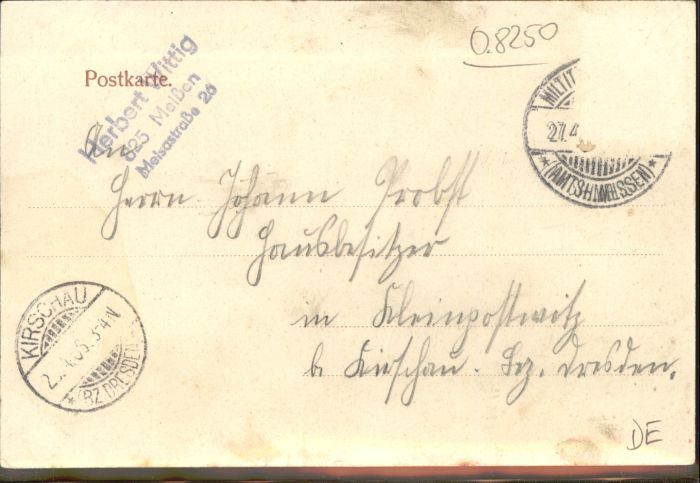 0.8250
Postkarte.
Herbert Wittig
825 Meißen
Meisastraße 26
MILTIT
27.4
*(AMTSH.MEISSEN)*
An
Herrn Johann Probst
Hausbesitzer
in Kleinpostwitz
b. Kirschau. Bez. Dresden.
KIRSCHAU
05. 3-4N
*(BZ.DRESDEN)
DE